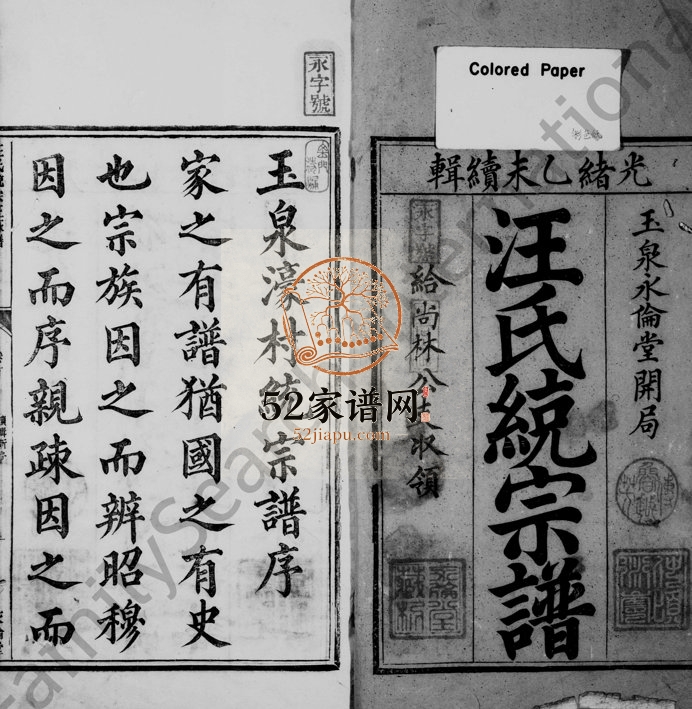 Colored Paper
光緒乙未續輯
玉泉水倫堂開局
汪氏統宗譜
永字號
給尚林公
收領
永字號
玉泉濠村統宗譜序
家之有譜猶國之有史
也宗族因之而辨昭穆
因之而序親疎因之而
52家谱网
52jiapu.com
FamilySearch International